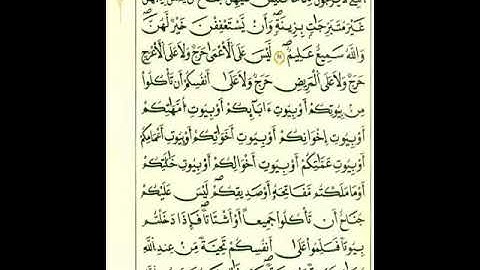 غَيْرَ مُتَبَرِّجَٰتِۭ بِزِينَةٍۖ وَأَن يَسْتَعْفِفْنَ خَيْرٌ لَّهُنَّۗ
وَاللَّهُ سَمِيعٌ عَلِيمٌ لَّيْسَ عَلَى الْأَعْمَىٰ حَرَجٌ وَلَا عَلَى الْأَعْرَجِ
حَرَجٌ وَلَا عَلَى الْمَرِيضِ حَرَجٌ وَلَا عَلَىٰ أَنفُسِكُمْ أَن تَأْكُلُوا
مِنۢ بُيُوتِكُمْ أَوْ بُيُوتِ ءَابَآئِكُمْ أَوْ بُيُوتِ أُمَّهَٰتِكُمْ
أَوْ بُيُوتِ إِخْوَٰنِكُمْ أَوْ بُيُوتِ أَخَوَٰتِكُمْ أَوْ بُيُوتِ أَعْمَٰمِكُمْ
أَوْ بُيُوتِ عَمَّٰتِكُمْ أَوْ بُيُوتِ أَخْوَٰلِكُمْ أَوْ بُيُوتِ خَٰلَٰتِكُمْ
أَوْ مَا مَلَكْتُم مَّفَاتِحَهُۥٓ أَوْ صَدِيقِكُمْۚ لَيْسَ عَلَيْكُمْ
جُنَاحٌ أَن تَأْكُلُوا جَمِيعًا أَوْ أَشْتَاتًاۚ فَإِذَا دَخَلْتُم
بُيُوتًا فَسَلِّمُوا عَلَىٰٓ أَنفُسِكُمْ تَحِيَّةً مِّنْ عِندِ اللَّهِ